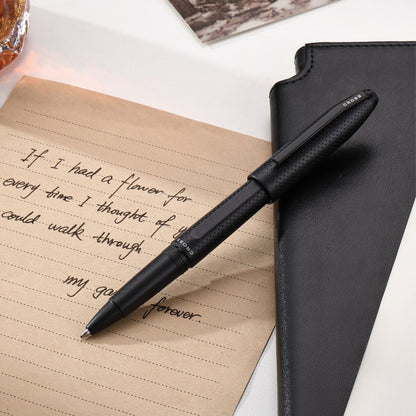 If I had a flower for
every time I thought of
could walk through
my forever.
CROSS
CROSS